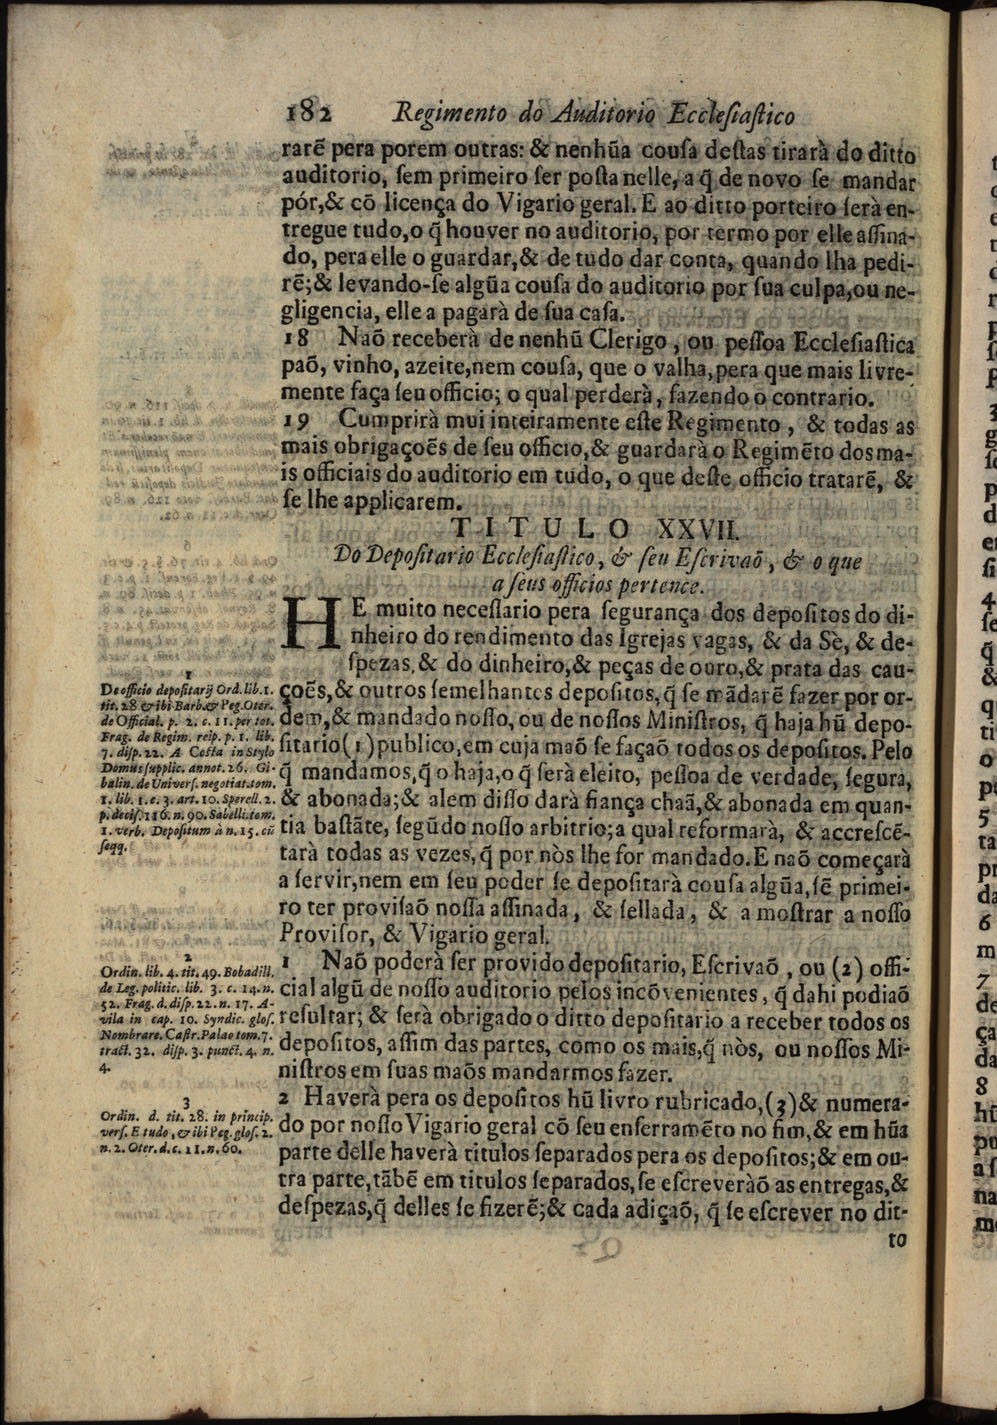 182 Regimento do Auditorio Ecclesiastico
rarẽ pera porem outras: & nenhũa cousa destas tirarà do ditto
auditorio, sem primeiro ser posta nelle, a q̃ de novo se mandar
pór,& cõ licença do Vigario geral. E ao ditto porteiro serà en-
tregue tudo,o q̃ houver no auditorio, por termo por elle assina-
do, pera elle o guardar,& de tudo dar conta, quando lha pedi-
rẽ;& levando-se algũa cousa do auditorio por sua culpa,ou ne-
gligencia, elle a pagarà de sua casa.
18 Naõ receberà de nenhũ Clerigo, ou pessoa Ecclesiastica
paõ, vinho, azeite,nem cousa, que o valha,pera que mais livre-
mente faça seu officio; o qual perderà, fazendo o contrario.
19 Cumprirà mui inteiramente este Regimento, & todas as
mais obrigaçoẽs de seu officio,& guardarà o Regimẽto dos ma-
is officiais do auditorio em tudo, o que deste officio tratarẽ, &
se lhe applicarem.
TITULO XXVII.
Do Depositario Ecclesiastico, & seu Escrivaõ, & o que
a seus officios pertence.
HE muito necessario pera segurança dos depositos do di-
nheiro do rendimento das Igrejas vagas, & da Sè, & de-
spezas, & do dinheiro,& peças de ouro,& prata das cau-
çoẽs,& outros semelhantes depositos,q̃ se mãdarẽ fazer por or-
dem,& mandado nosso, ou de nossos Ministros, q̃ haja hũ depo-
sitario(1)publico,em cuja maõ se façaõ todos os depositos. Pelo
q̃ mandamos,q̃ o haja,o q̃ serà eleito, pessoa de verdade, segura,
& abonada;& alem disso darà fiança chaã,& abonada em quan-
tia bastãte, segũdo nosso arbitrio;a qual reformarà, & accrescẽ-
tarà todas as vezes,q̃ por nòs lhe for mandado. E naõ começarà
a servir,nem em seu poder se depositarà cousa algũa,sẽ primei-
ro ter provisaõ nossa assinada, & sellada, & a mostrar a nosso
Provisor, & Vigario geral.
1 Naõ poderà ser provido depositario, Escrivaõ, ou (2) offi-
cial algũ de nosso auditorio pelos incõvenientes, q̃ dahi podiaõ
resultar; & serà obrigado o ditto depositario a receber todos os
depositos, assim das partes, como os mais,q̃ nòs, ou nossos Mi-
nistros em suas maõs mandarmos fazer.
2 Haverà pera os depositos hũ livro rubricado,(3)& numera-
do por nosso Vigario geral cõ seu enserramẽto no fim,& em hũa
parte delle haverà titulos separados pera os depositos;& em ou-
tra parte,tãbẽ em titulos separados,se escreveràõ as entregas,&
despezas,q̃ delles se fizerẽ;& cada adiçaõ, q̃ se escrever no dit-
to
1
De officio depositarij Ord. lib. 1.
tit. 28 & ibi Barb.& Peg. Oter.
de Official. p. 2. c. 11. per tot.
Frag. de Regim. reip. p. 1. lib.
7. disp. 22. A Costa in Stylo
Domus supplic. annot. 26. Gi-
balin. de Univers. negotiat. tom.
1. lib. 1. c. 3. art. 10. Sperell. 2.
p. decis. 116. n. 90. Sabelli. tom.
1. verb. Depositum à n. 15. cũ
seqq.
2
Ordin. lib. 4. tit. 49. Bobadill.
de Leg. politic. lib. 3. c. 14. n.
52. Frag. d. disp. 22. n. 17. A-
vila in cap. 10. Syndic. glos.
Nombrare. Castr. Palao tom. 7.
tract. 32. disp. 3. punct. 4. n.
4.
3
Ordin. d. tit. 28. in princip.
vers. E tudo, & ibi Peg. glos. 2.
n. 2. Oter. d. c. 11. n. 60.